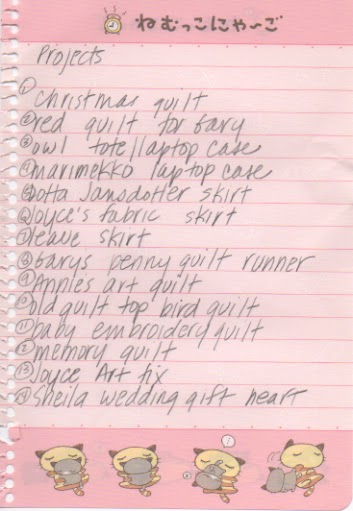 ねむっこにゃ〜ご
Projects
① Christmas quilt
② red quilt for Gary
③ owl tote/laptop case
④ marimekko laptop case
⑤ Lotta Jansdotter skirt
⑥ Joyce's fabric skirt
⑦ leave skirt
⑧ Garys penny quilt runner
⑨ Annie's art quilt
⑩ old quilt top bird quilt
⑪ baby embroidery quilt
⑫ memory quilt
⑬ Joyce Art fix
⑭ Sheila wedding gift heart